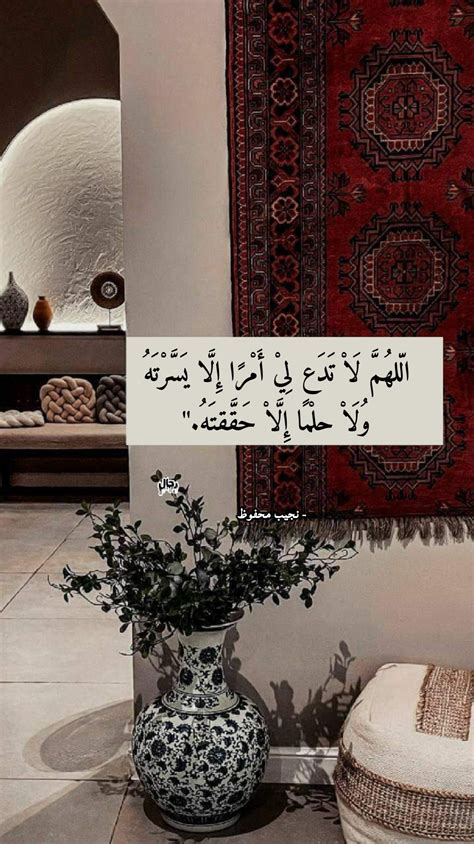 الّلهُمَّ لَاْ تَدَع لِيْ أَمْرًا إِلَّا يَسَّرْتَهُ
وُلَاْ حلْمًا إِلَّاْ حَقَّقتَهُ."
- نجيب محفوظ